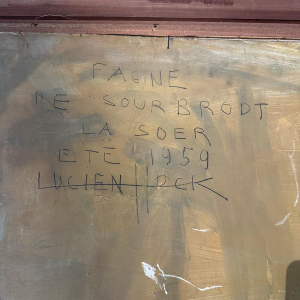 FAGNE
DE SOURBRODT
LA SOER
ETE 1959
LUCIEN